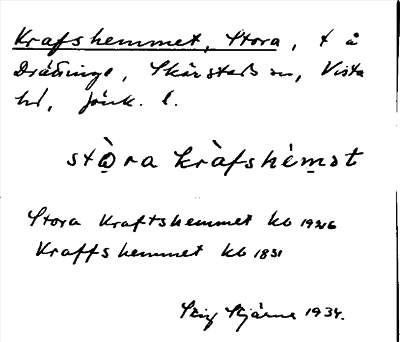 Krafshemmet, Stora, t å
Drättinge, Skärstads sn, Vista
hd, Jönk. l.
stòra kràfshèmət
Stora Kraftshemmet kb 1926
Kraffshemmet kb 1831
Stig Stjärne 1934.